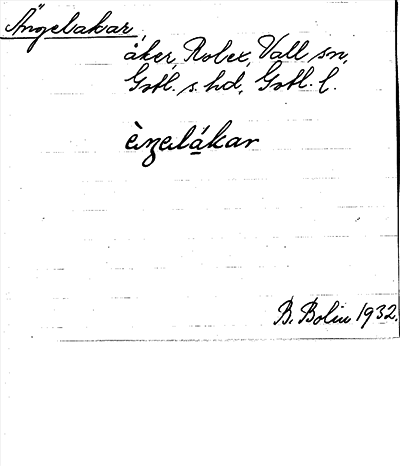 Ängelakar,
åker, Rolex, Vall sn,
Gotl. s. hd, Gotl. l.
B. Bolin 1932.